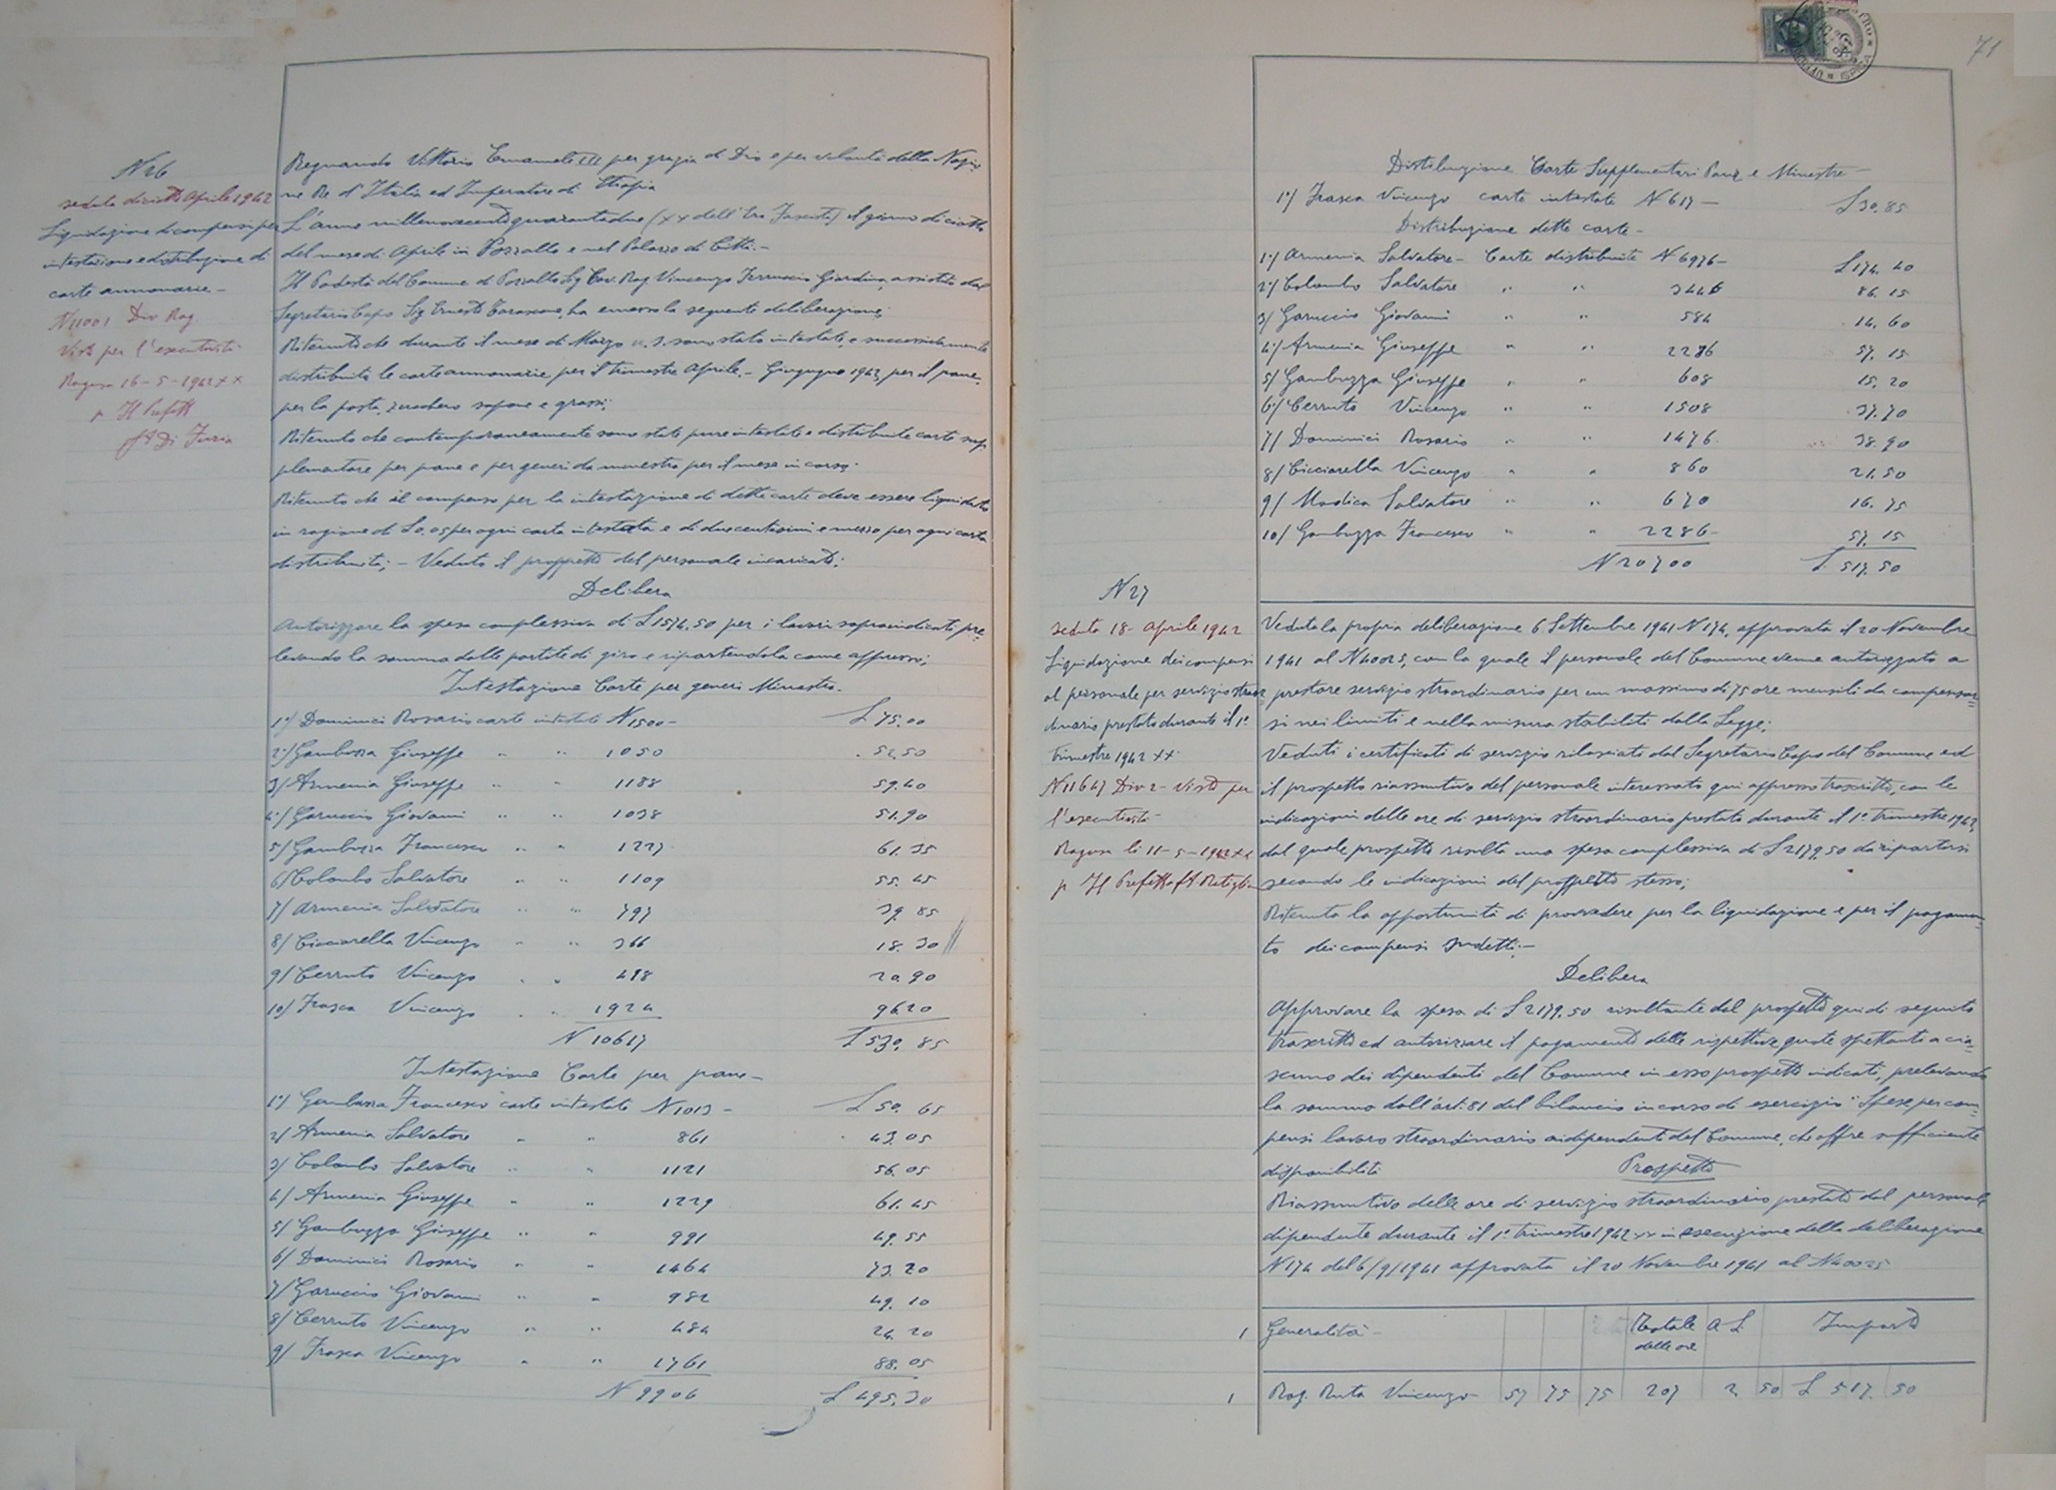 N 26
seduta diciotto Aprile 1942
Liquidazione di compensi per
intestazione e distribuzione di
carte annonarie -
N 11001 Div Rag.
Visto per l'esecutività
Ragusa 16-5-1942 XX
p Il Prefetto
f° Di Furia
Regnando Vittorio Emanuele III per grazia di Dio e per volontà della Nazio-
ne Re d'Italia ed Imperatore di Etiopia
L'anno millenovecentoquarantadue (XX dell'Era Fascista) il giorno diciotto
del mese di Aprile in Pozzallo e nel Palazzo di Città.-
Il Podestà del Comune di Pozzallo Sig Cav. Rag Vincenzo Ferruccio Giardina, assistito dal
Segretario Capo Sig Ernesto Tarascone, ha emesso la seguente deliberazione;
Ritenuto che durante il mese di Marzo u. s. sono stato intestate, e successivamente
distribuite le carte annonarie per il trimestre Aprile - Giugugno 1942, per il pane,
per la pasta, zucchero sapone e grassi;
Ritenuto che contemporaneamente sono state pure intestate e distribuite carte sup-
plementare per pane e per generi da minestra per il mese in corso.
Ritenuto che il compenso per la intestazione di dette carte deve essere liquidato
in ragione di L 0.05 per ogni carta intestata e di due centesimi e mezzo per ogni carta
distribuita; - Veduto il prospetto del personale incaricato;
Delibera
Autorizzare la spesa complessiva di L 1574.50 per i lavori sopraindicati, pre
levando la somma dalle partite di giro e ripartendola come appresso;
Intestazione Carte per generi Minestra.
1°/ Dominici Rosario carte intestate N 1500 - L 75.00
2°/ Gambuzza Giuseppe " " 1050 52.50
3/ Armenia Giuseppe " " 1188 59.40
4°/ Garuccio Giovanni " " 1038 51.90
5/ Gambuzza Francesco " " 1227 61.35
6/ Colombo Salvatore " " 1109 55.45
7/ Armenia Salvatore " " 797 39.85
8/ Cicciarella Vincenzo " " 366 18.30
9/ Cerruto Vincenzo " " 418 20.90
10/ Frasca Vincenzo " " 1924 96.20
N 10617 L 530.85
Intestazione Carte per pane -
1°/ Gambuzza Francesco carte intestate N 1013 - L 50.65
2/ Armenia Salvatore " " 861 43.05
3/ Colombo Salvatore " " 1121 56.05
4/ Armenia Giuseppe " " 1229 61.45
5/ Gambuzza Giuseppe " " 991 49.55
6/ Dominici Rosario " " 1464 73.20
7/ Garuccio Giovanni " " 982 49.10
8/ Cerruto Vincenzo " " 484 24.20
9/ Frasca Vincenzo " " 1761 88.05
N 9906 L 495.30
71
Distribuzione Carte Supplementari Pane e Minestre -
1°/ Frasca Vincenzo carte intestate N 617 - L 30.85
Distribuzione dette carte -
1°/ Armenia Salvatore - Carte distribuite N 6976 - L 174.40
2°/ Colombo Salvatore " " 3446 86.15
3/ Garuccio Giovanni " " 584 14.60
4°/ Armenia Giuseppe " " 2286 57.15
5/ Gambuzza Giuseppe " " 608 15.20
6°/ Cerruto Vincenzo " " 1508 37.70
7/ Dominici Rosario " " 1476 38.90
8/ Cicciarella Vincenzo " " 860 21.50
9/ Modica Salvatore " " 670 16.75
10/ Gambuzza Francesco " " 2286 - 57.15
N 20700 L 517.50
N 27
seduta 18 Aprile 1942
Liquidazione dei compensi
al personale per servizio straor
dinario prestato durante il 1°
trimestre 1942 XX.
N 11647 Div 2 - Visto per
l'esecutività
Ragusa li 11-5-1942 XX
p Il Prefetto
Veduta la propria deliberazione 6 Settembre 1941 N 174, approvata il 20 Novembre
1941 al N 40025, con la quale il personale del Comune venne autorizzato a
prestare servizio straordinario per un massimo di 75 ore mensili da compensar
si nei limiti e nella misura stabiliti dalla Legge;
Veduti i certificati di servizio rilasciati dal Segretario Capo del Comune ed
il prospetto riassuntivo del personale interessato qui appresso trascritto, con le
indicazioni delle ore di servizio straordinario prestato durante il 1° trimestre 1942,
dal quale prospetto risulta una spesa complessiva di L 2179.50 da ripartirsi
secondo le indicazioni del prospetto stesso;
Ritenuta la opportunità di provvedere per la liquidazione e per il pagamen-
to dei compensi sudetti; -
Delibera
Approvare la spesa di L 2179.50 risultante dal prospetto qui di seguito
trascritto ed autorizzare il pagamento delle rispettive quote spettanti a cia-
scuno dei dipendenti del Comune in esso prospetto indicati, prelevando
la somma dall'art. 81 del bilancio in corso di esercizio "Spese per com-
pensi lavoro straordinario ai dipendenti del Comune, che offre sufficiente
disponibilità
Prospetto
Riassuntivo delle ore di servizio straordinario prestato dal personale
dipendente durante il 1° trimestre 1942 XX in esecuzione della deliberazione
N 174 del 6/9/1941 approvata il 20 Novembre 1941 al N 40025
1 Generalità - Totale delle ore A L Importo
1 Rag. Ruta Vincenzo 57 75 75 207 2 50 L 517. 50